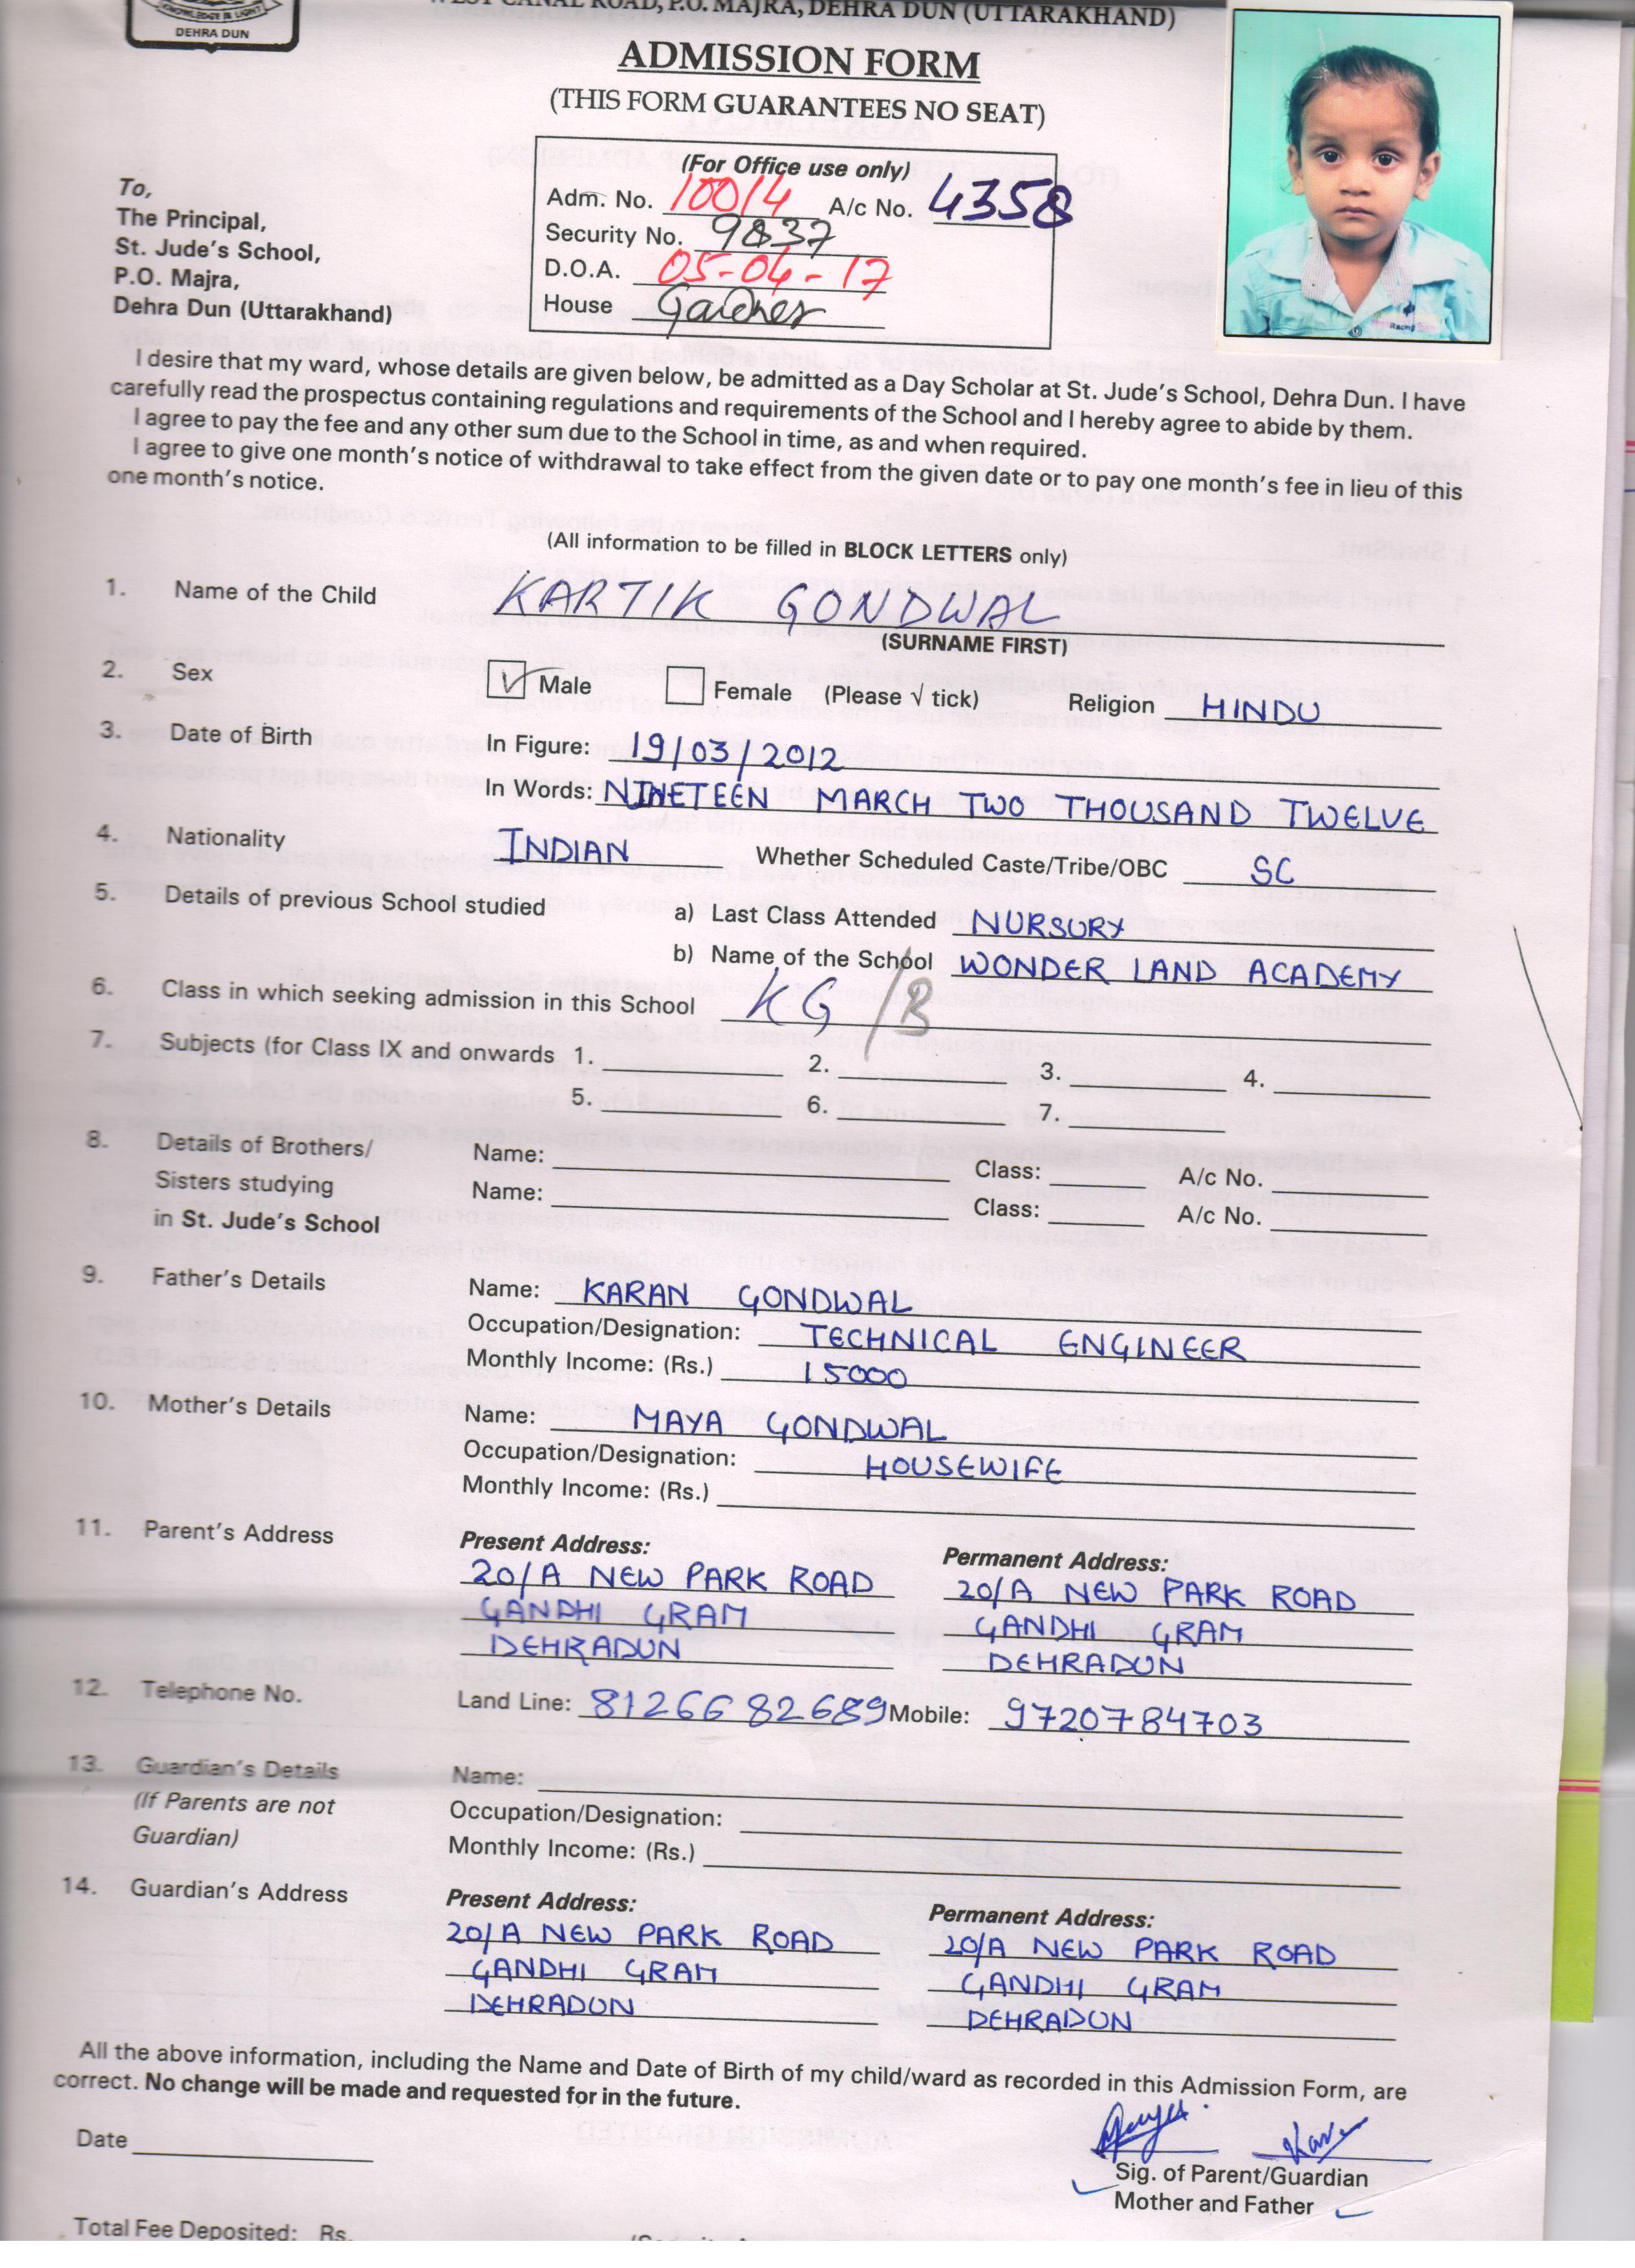 KNOWLEDGE IS LIGHT
DEHRA DUN
WEST CANAL ROAD, P.O. MAJRA, DEHRA DUN (UTTARAKHAND)
ADMISSION FORM
(THIS FORM GUARANTEES NO SEAT)
(For Office use only)
Adm. No. 10014 A/c No. 4358
Security No. 9837
D.O.A. 05-04-17
House Gardner
To,
The Principal,
St. Jude's School,
P.O. Majra,
Dehra Dun (Uttarakhand)
I desire that my ward, whose details are given below, be admitted as a Day Scholar at St. Jude's School, Dehra Dun. I have
carefully read the prospectus containing regulations and requirements of the School and I hereby agree to abide by them.
I agree to pay the fee and any other sum due to the School in time, as and when required.
I agree to give one month's notice of withdrawal to take effect from the given date or to pay one month's fee in lieu of this
one month's notice.
(All information to be filled in BLOCK LETTERS only)
1. Name of the Child KARTIK GONDWAL
(SURNAME FIRST)
2. Sex Male Female (Please √ tick) Religion HINDU
3. Date of Birth In Figure: 19/03/2012
In Words: NINETEEN MARCH TWO THOUSAND TWELVE
4. Nationality INDIAN Whether Scheduled Caste/Tribe/OBC SC
5. Details of previous School studied a) Last Class Attended NURSURY
b) Name of the School WONDER LAND ACADEMY
6. Class in which seeking admission in this School KG /B
7. Subjects (for Class IX and onwards 1. 2. 3. 4.
5. 6. 7.
8. Details of Brothers/ Name: Class: A/c No.
Sisters studying Name: Class: A/c No.
in St. Jude's School
9. Father's Details Name: KARAN GONDWAL
Occupation/Designation: TECHNICAL ENGINEER
Monthly Income: (Rs.) 15000
10. Mother's Details Name: MAYA GONDWAL
Occupation/Designation: HOUSEWIFE
Monthly Income: (Rs.)
11. Parent's Address Present Address: Permanent Address:
20/A NEW PARK ROAD 20/A NEW PARK ROAD
GANDHI GRAM GANDHI GRAM
DEHRADUN DEHRADUN
12. Telephone No. Land Line: 8126682689 Mobile: 9720784703
13. Guardian's Details Name:
(If Parents are not Occupation/Designation:
Guardian) Monthly Income: (Rs.)
14. Guardian's Address Present Address: Permanent Address:
20/A NEW PARK ROAD 20/A NEW PARK ROAD
GANDHI GRAM GANDHI GRAM
DEHRADUN DEHRADUN
All the above information, including the Name and Date of Birth of my child/ward as recorded in this Admission Form, are
correct. No change will be made and requested for in the future.
Date
Sig. of Parent/Guardian
Mother and Father
Total Fee Deposited: Rs.